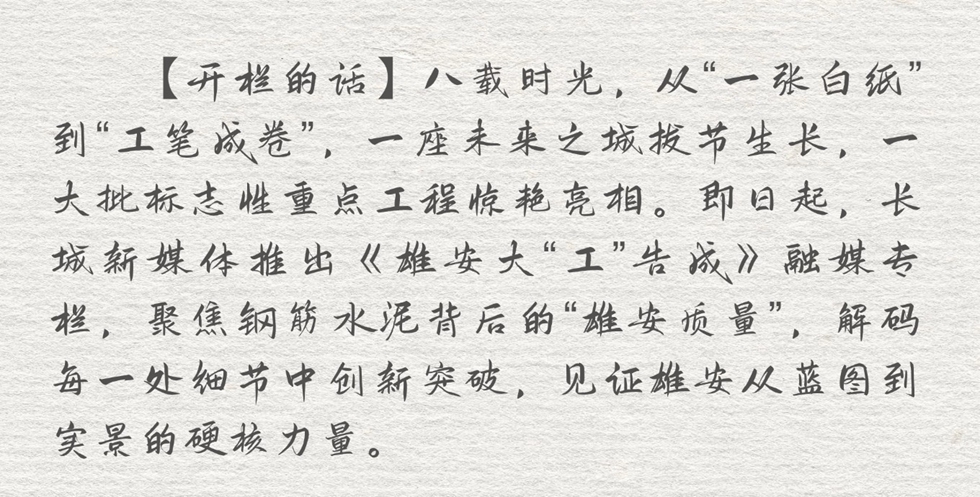 【开栏的话】八载时光，从“一张白纸”
到“工笔成卷”，一座未来之城拔节生长，一
大批标志性重点工程惊艳亮相。即日起，长
城新媒体推出《雄安大“工”告成》融媒专
栏，聚焦钢筋水泥背后的“雄安质量”，解码
每一处细节中创新突破，见证雄安从蓝图到
实景的硬核力量。